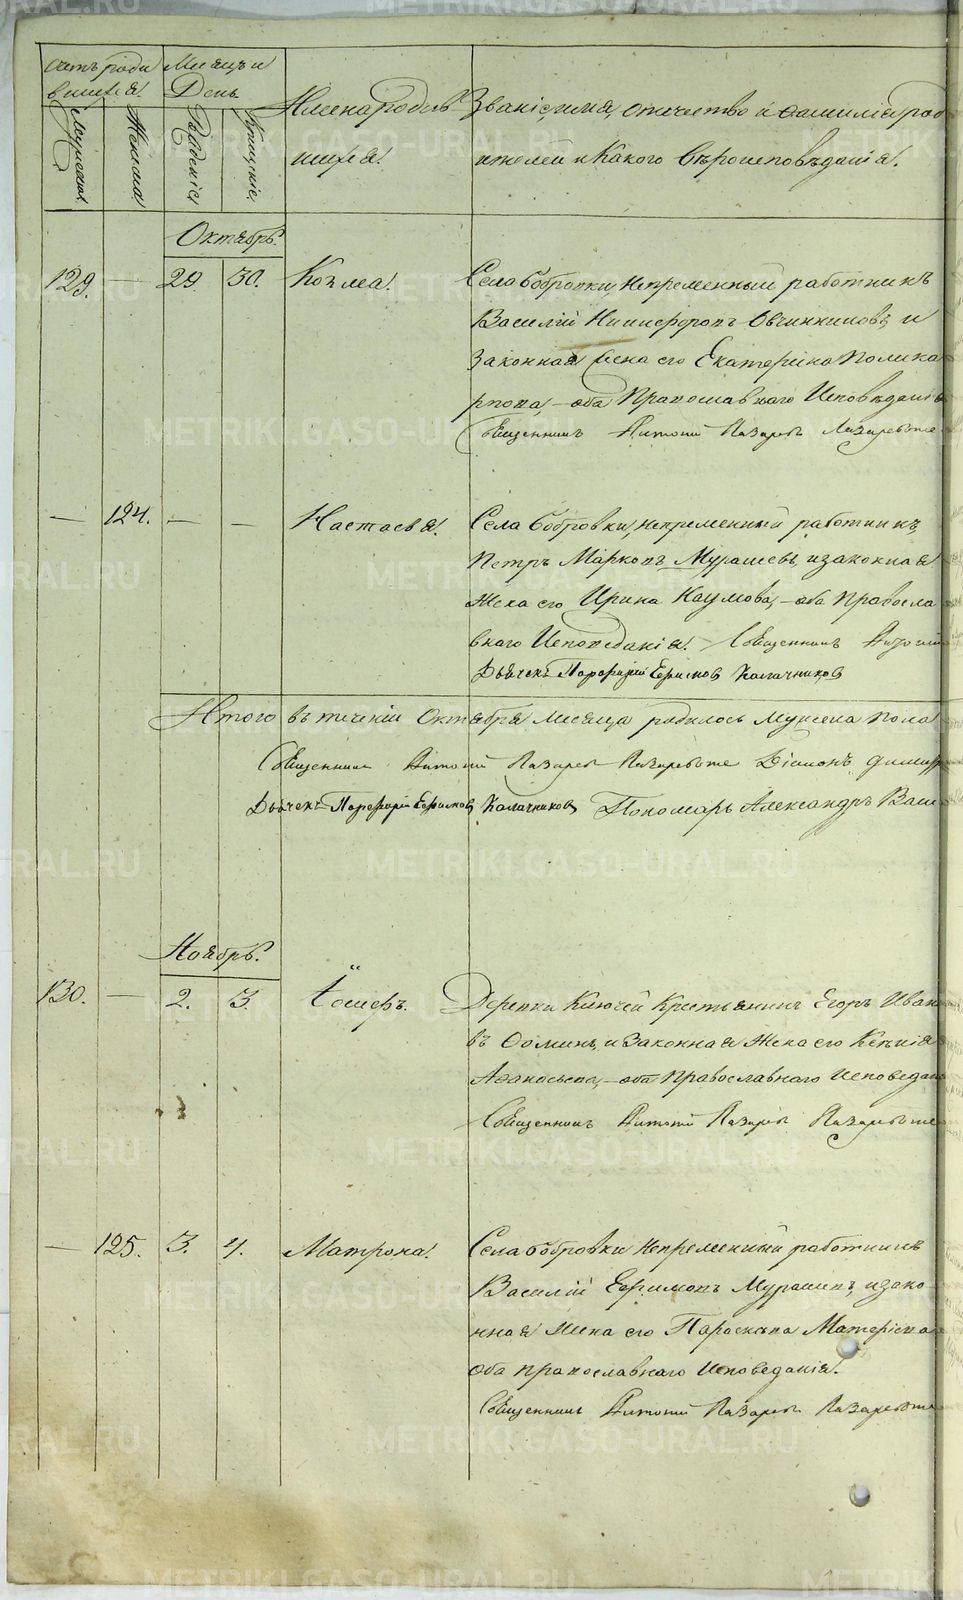 Счетъ роди
вшихся.
Мѣсяцъ и
День
Мужеска
Женска
Рожденія
Крещенія
Имена родив
шихся.
Званіе, имя, отечество и фамилія род
ителей и какого вѣроисповѣданія.
Октябрь.
129. — 29 30. Козма.
Села Бобровки, непременный работникъ
Василій Никифоровъ Овчинниковъ, и
законная жена его Екатерина Полика
рпова, — оба Православнаго Исповѣданія
Священникъ Антоній Лазаревъ
— 124. — — Настасья.
Села Бобровки, непременный работникъ,
Петръ Марковъ Мурашевъ, и законная
Жена его Ирина Наумова, — оба Правосла
внаго Исповеданія. Священникъ Антоній
Дьячекъ Порфирій Ефимовъ Калачниковъ
Итого въ теченіи Октября Месяца родилось Мужеска пола
Священникъ Антоній Лазаревъ Діаконъ Димитр
Дьячекъ Порфирій Ефимовъ Калачниковъ Пономарь Александръ Васи
Ноябрь.
130. — 2. 3. Іосифъ.
Деревни Ключей Крестьянинъ Егоръ Иван
въ Фоминъ, и Законная Жена его Ксенія
Афанасьева, — оба Православнаго Исповедан
Священникъ Антоній Лазаревъ
— 125. 3. 4. Матрона.
Села Бобровки непременный работникъ
Василій Ефимовъ Мурашевъ, и зако
нная жена его Параскева
оба православнаго Исповеданія.
Священникъ Антоній Лазаревъ
METRIKI.GASO-URAL.RU